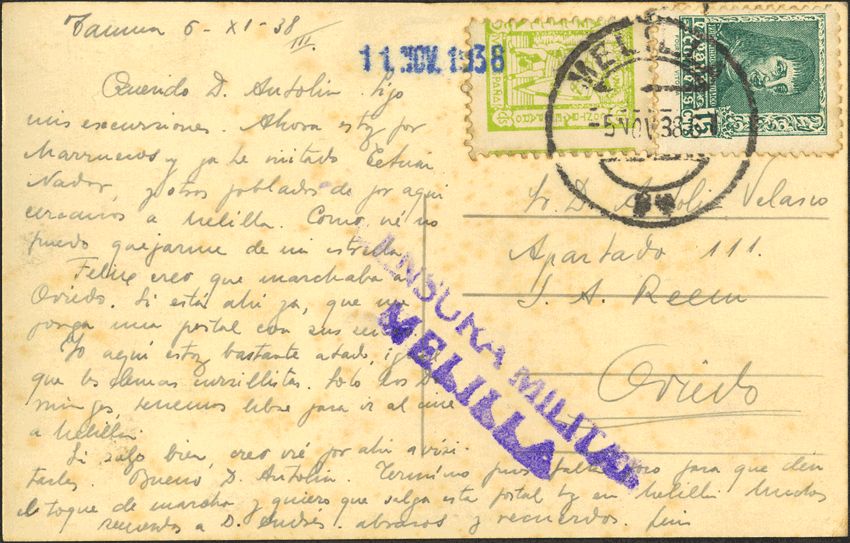 6-XI-38
III
11 NOV. 1938
MELILLA
-5 NOV 38
15
Querido D. Antolin. Sigo
mis excursiones. Ahora estoy por
Marruecos y ya he visitado Tetuan
Nador, y otros poblados de por aqui
cercanos a Melilla. Como vé no
puedo quejarme de mi estrella.
Felix creo que marchaba a
Oviedo. Si está ahi ya, que me
ponga una postal con sus
Yo aqui estoy bastante atado, igual
que los demas cursillistas. Solo los Do
mingos, tenemos libre para ir al cine
a Melilla.
Si salgo bien, creo iré por ahi a visi
tarles. Bueno, D. Antolin. Termino pues falta poco para que den
el toque de marcha y quiero que salga esta postal hoy en Melilla. Muchos
recuerdos a D. Andrés. abrazos y recuerdos. Luis
CENSURA MILITAR
MELILLA
Sr. D. Antolin Velasco
Apartado 111.
S. A.
Oviedo